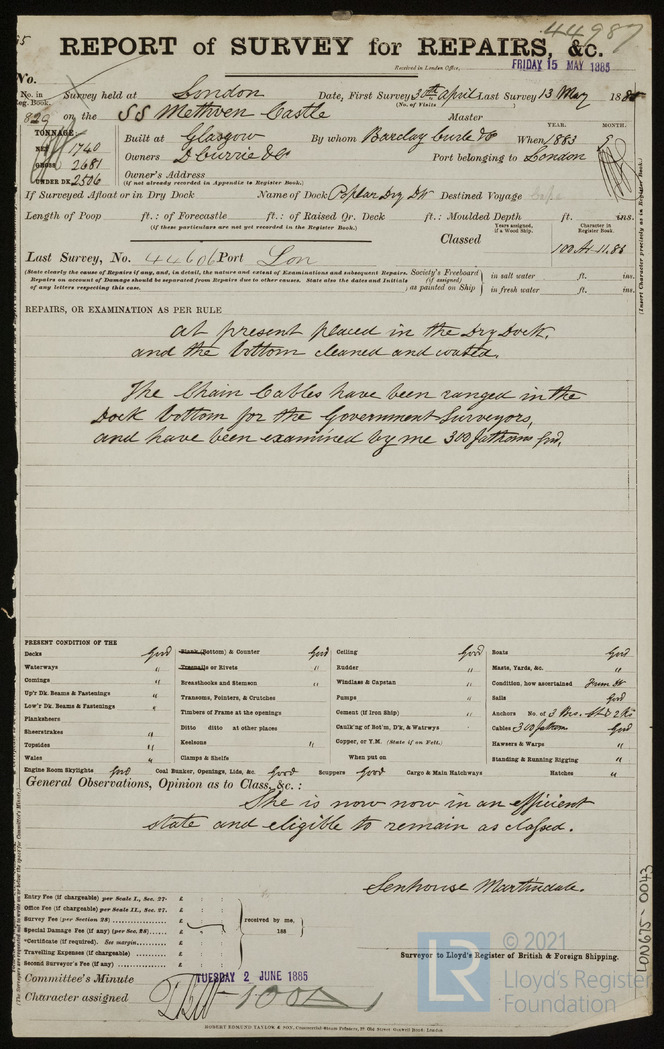 44987
REPORT of SURVEY for REPAIRS, &c.
Received in London Office, FRIDAY 15 MAY 1885
No.
No. in Reg. Book. Survey held at London Date, First Survey 30th April Last Survey 13 May 1885
(No. of Visits )
829 on the SS Methven Castle Master
TONNAGE
YEAR. MONTH.
NET 1740 Built at Glasgow By whom Barclay Curle & Co When 1883 5
GROSS 2681 Owners D Currie & Co Port belonging to London
UNDER DK. 2506 Owner's Address
(if not already recorded in Appendix to Register Book.)
If Surveyed Afloat or in Dry Dock Name of Dock Poplar Dry Dk Destined Voyage Cape
Length of Poop ft.: of Forecastle ft.: of Raised Qr. Deck ft.: Moulded Depth ft. ins.
(if these particulars are not yet recorded in the Register Book.)
Years assigned, if a Wood Ship. Character in Register Book.
Classed 100 A1 11.83
Last Survey, No. 44606 Port Lon
(State clearly the cause of Repairs if any, and, in detail, the nature and extent of Examinations and subsequent Repairs.
Repairs on account of Damage should be separated from Repairs due to other causes. State also the dates and Initials
of any letters respecting this case.
Society's Freeboard (if assigned) as painted on Ship in salt water ft. ins.
in fresh water ft. ins.
(Insert Character precisely as in Register Book.)
REPAIRS, OR EXAMINATION AS PER RULE
at present placed in the Dry Dock,
and the bottom cleaned and coated.
The Chain Cables have been ranged in the
Dock bottom for the Government Surveyors,
and have been examined by me 300 fathoms good.
PRESENT CONDITION OF THE
Decks Good Plank (Bottom) & Counter Good Ceiling Good Boats Good
Waterways " Treenails or Rivets " Rudder " Masts, Yards, &c. "
Comings " Breasthooks and Stemson " Windlass & Capstan " Condition, how ascertained From Dk
Up'r Dk. Beams & Fastenings " Transoms, Pointers, & Crutches Pumps " Sails Good
Low'r Dk. Beams & Fastenings " Timbers of Frame at the openings Cement (if Iron Ship) " Anchors No. of 3 Brs.
Planksheers Ditto ditto at other places Caulk'ng of Bot'm, D'k, & Watrwys Cables 300 fathoms Good
Sheerstrakes " Keelsons " Copper, or Y.M. (State if on Felt.) Hawsers & Warps "
Topsides " Clamps & Shelfs When put on Standing & Running Rigging "
Wales "
Engine Room Skylights Good Coal Bunker, Openings, Lids, &c. Good Scuppers Good Cargo & Main Hatchways Hatches "
General Observations, Opinion as to Class, &c. :
She is now now in an efficient
state and eligible to remain as classed.
Senhouse Martindale.
Surveyor to Lloyd's Register of British & Foreign Shipping.
Entry Fee (if chargeable) per Scale I., Sec. 27. £ : :
Office Fee (if chargeable) per Scale II., Sec. 27. £ : :
Survey Fee (per Section 28) £ : :
Special Damage Fee (if any) (per Sec. 28) £ : :
*Certificate (if required). See margin £ : :
Travelling Expenses (if chargeable) £ : :
Second Surveyor's Fee (if any) £ : :
received by me,
188
Committee's Minute TUESDAY 2 JUNE 1885
Character assigned 100A1
ROBERT EDMUND TAYLOR & SON,
LON675-0043
LR
© 2021
Lloyd's Register
Foundation